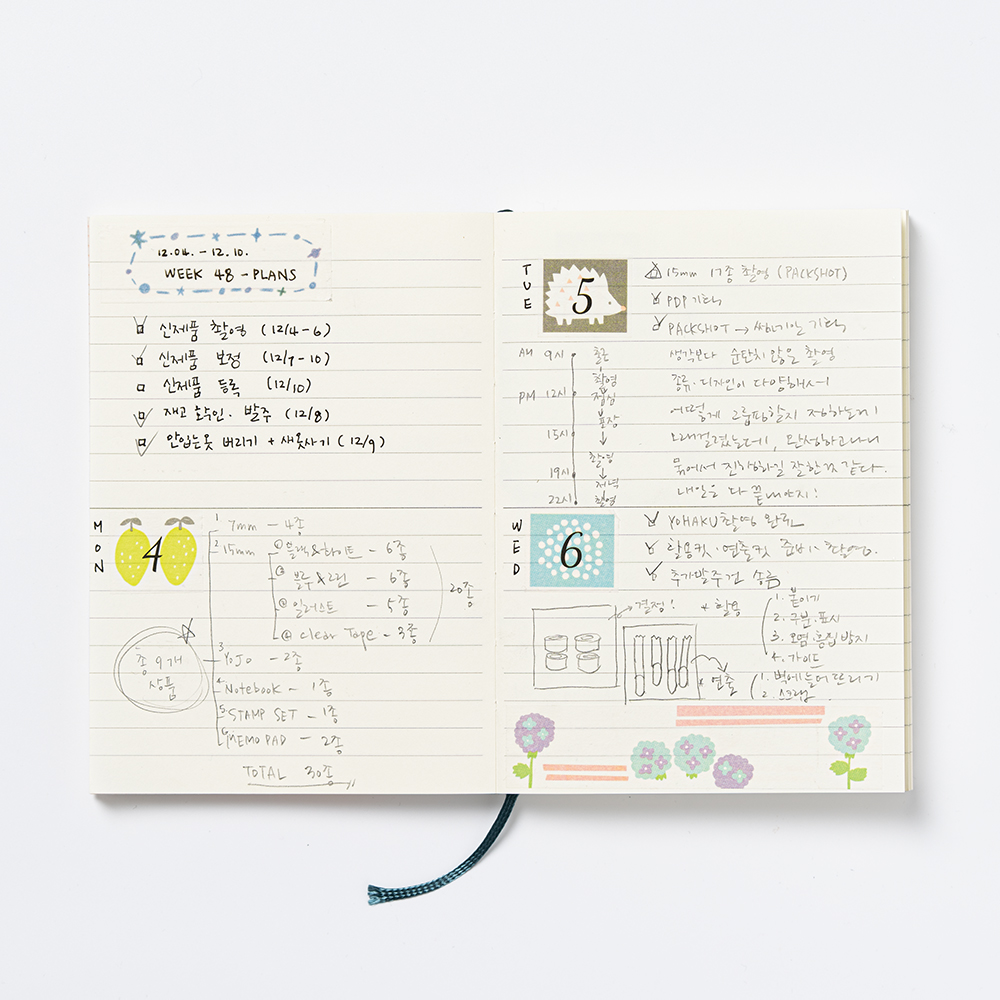 12.04. - 12.10.
WEEK 48 - PLANS
신제품 촬영 (12/4-6)
신제품 보정 (12/7-10)
신제품 등록 (12/10)
재고 확인. 발주 (12/8)
안입는옷 버리기 + 새옷사기 (12/9)
MON
4
1 7mm - 4종
2 15mm
① 블랙&화이트 - 6종
블루&그린 - 6종
일러스트 - 5종
④ clear Tape - 3종
20종
총 9개
상품
3 YOJO - 2종
4 Notebook - 1종
5 STAMP SET - 1종
6 MEMO PAD - 2종
TOTAL 30종
TUE
5
15mm 17종 촬영 (PACKSHOT)
PDP 기타
PACKSHOT →
AM 9시 출근
촬영
PM 12시 점심
포장
15시
촬영
19시 저녁
22시 촬영
생각보다 순탄치 않은 촬영
종류·디자인이 다양해서
어떻게 그룹핑할지 정하는게
오래걸렸는데, 완성하고나니
묶어서 진행하길 잘한것 같다.
내일은 다 끝내야지!
WED
6
YOHAKU 촬영 완료
활용컷·연출컷 준비·촬영.
추가발주건 송금
결정!
* 활용
1. 붙이기
2. 구분·표시
3. 오염·흠집 방지
4. 가이드
* 연출
1. 벽에 늘어뜨리기
2. 스크랩